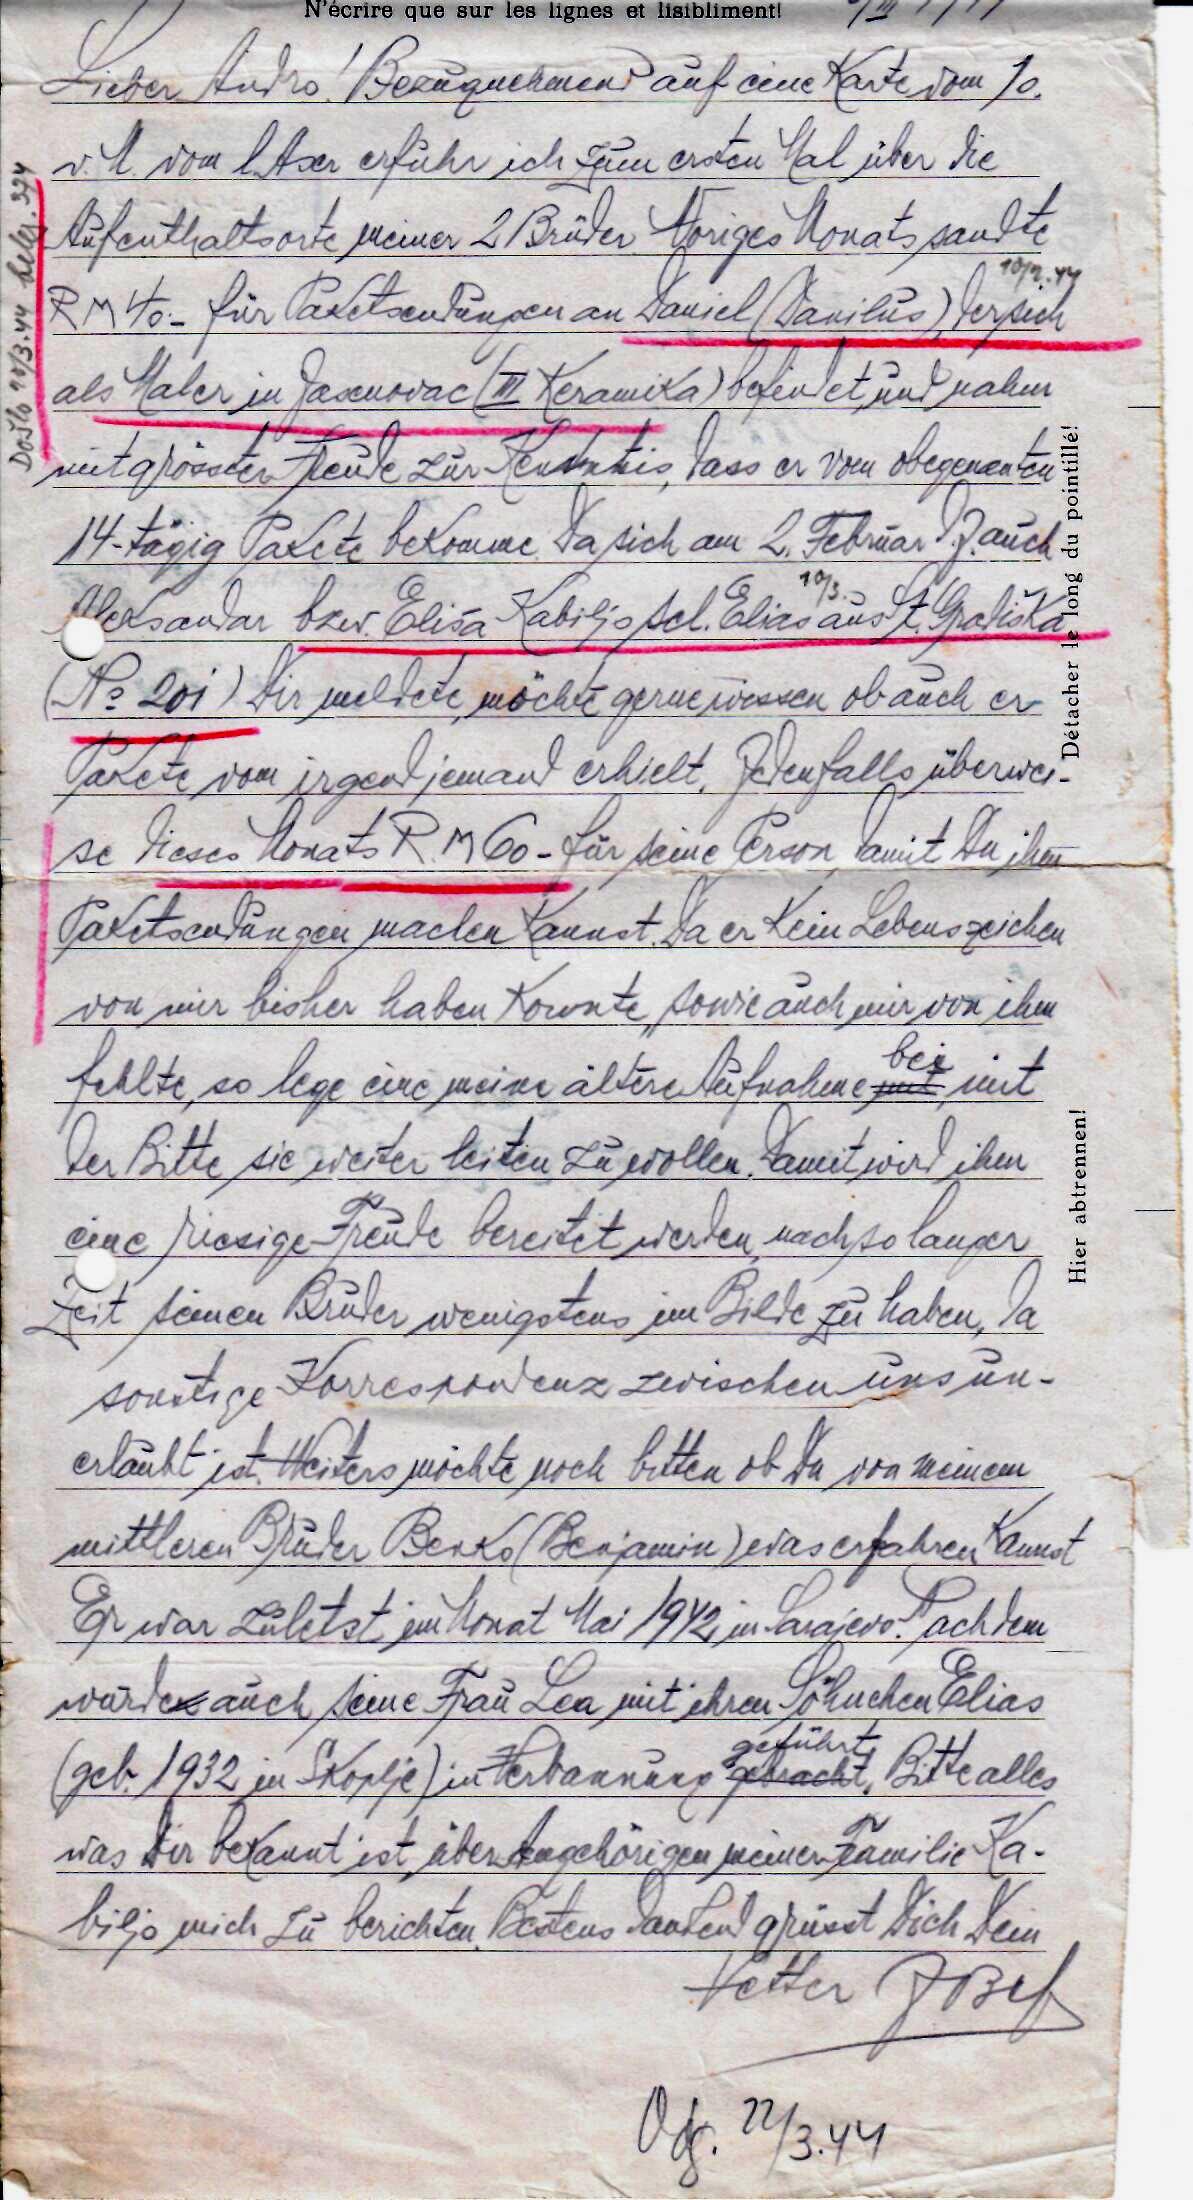 N'écrire que sur les lignes et lisiblement!
Lieber Andro! Bezugnehmend auf eine Karte vom 10.
v. M. vom l. Aser erfuhr ich zum ersten Mal über die
Aufenthaltsorte meiner 2 Brüder. Voriges Monats sandte
10/2.44
R M 40.- für Paketsendungen an Daniel (Danilus), der sich
als Maler in Jasenovac (III Keramika) befindet und nahm
mit grösster Freude zur Kenntnis, dass er vom obegenanten
14-tägig Pakete bekomme. Da sich am 2. Februar d. J. auch
10/3.
Aleksandar bzw. Eliša Kabiljo sel. Elias aus St. Gradiška
(No 201) Dir meldete, möchte gerne wissen ob auch er
Pakete von irgend jemand erhielt. Jedenfalls überwei-
se dieses Monats R. M 60- für seine Person, damit Du ihm
Paketsendungen machen kannst. Da er kein Lebenszeichen
von mir bisher haben konnte, sowie auch mir von ihm
fehlte, so lege eine meine ältere Aufnahme mit bei, mit
der Bitte sie weiter leiten zu wollen. Damit wird ihm
eine riesige Freude bereitet werden, nach so langer
Zeit seinen Bruder wenigstens im Bilde zu haben, da
sonstige Korrespondenz zwischen uns un-
erlaubt ist. Weiters möchte noch bitten ob Du von meinem
mittleren Bruder Benko (Benjamin) was erfahren kannst
Er war zuletst im Monat Mai 1942 in Sarajevo. Nachdem
wurde auch seine Frau Lea mit ihren Söhnchen Elias
(geb. 1932 in Skoplje) in Verbannung gebracht geführt. Bitte alles
was Dir bekannt ist, über Angehörigen meiner Familie Ka-
biljo mich zu berichten. Bestens dankend grüsst Dich Dein
Vetter Josef
Odg. 22/3.44
Došlo 20/3.44
Détacher le long du pointillé!
Hier abtrennen!